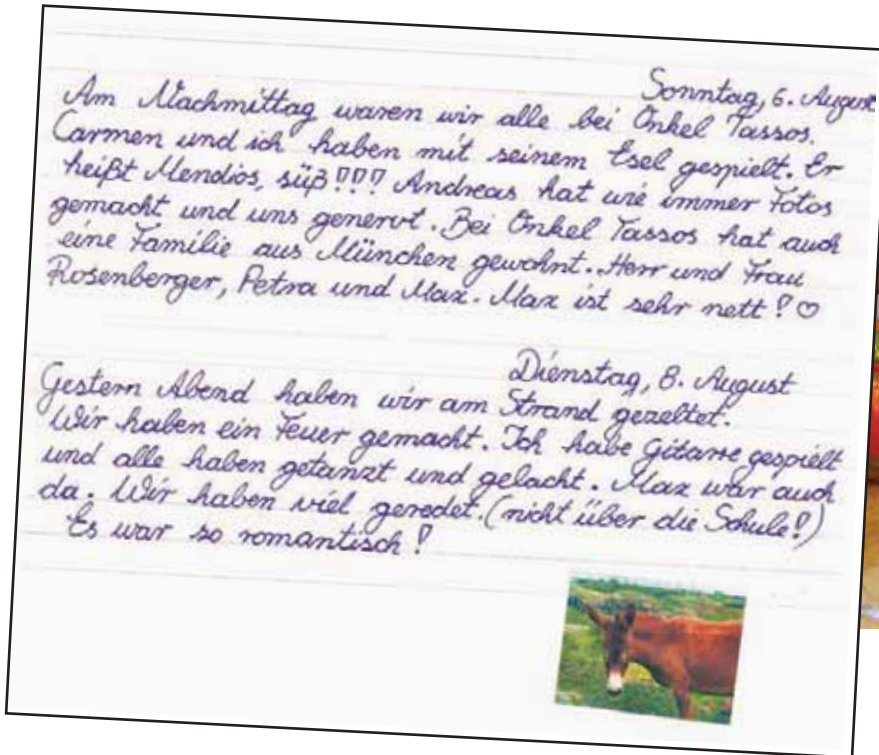 Sonntag, 6. August
Am Nachmittag waren wir alle bei Onkel Tassos.
Carmen und ich haben mit seinem Esel gespielt. Er
heißt Mendios, süß!!! Andreas hat wie immer Fotos
gemacht und uns genervt. Bei Onkel Tassos hat auch
eine Familie aus München gewohnt. Herr und Frau
Rosenberger, Petra und Max. Max ist sehr nett! ♡
Dienstag, 8. August
Gestern Abend haben wir am Strand gezeltet.
Wir haben ein Feuer gemacht. Ich habe Gitarre gespielt
und alle haben getanzt und gelacht. Max war auch
da. Wir haben viel geredet. (nicht über die Schule!)
Es war so romantisch!